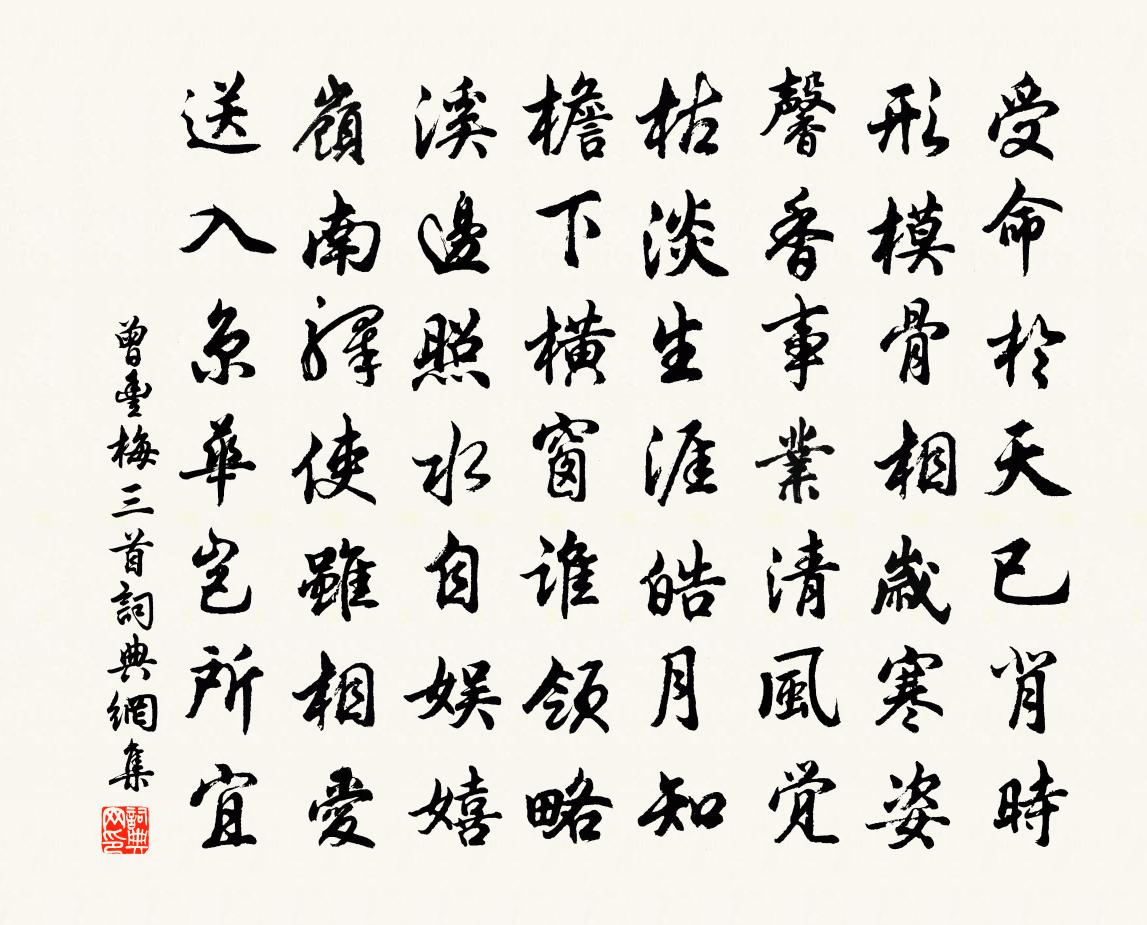 受命於天已肖時
形模骨相歲寒姿
馨香事業清風觉
枯淡生涯皓月知
檐下橫窗誰領略
溪邊照水自娛嬉
嶺南驛使雖相愛
送入京華豈所宜
曾豐梅三首詞典網集
詞典網印